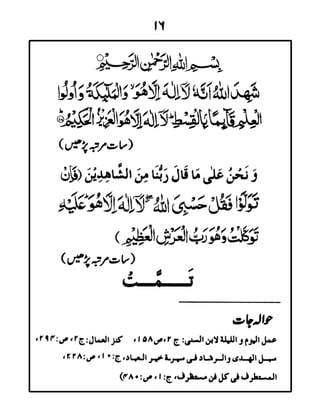 ١٦
بِسْمِ اللهِ الرَّحْمٰنِ الرَّحِيْمِ
شَهِدَ اللهُ اَنَّهٗ لَآ اِلٰهَ اِلَّا هُوَ ۙ وَالْمَلٰٓئِكَةُ وَاُولُوا
الْعِلْمِ قَآئِمًۢا بِالْقِسْطِ ؕ لَآ اِلٰهَ اِلَّا هُوَ الْعَزِيْزُ الْحَكِيْمُ
(سات مرتبہ پڑھیں)
وَ نَحْنُ عَلٰى مَا قَالَ رَبُّنَا مِنَ الشَّاهِدِيْنَ (فَاِنْ
تَوَلَّوْا فَقُلْ حَسْبِىَ اللهُ لَآ اِلٰهَ اِلَّا هُوَ ؕ عَلَيْهِ
تَوَكَّلْتُ وَهُوَ رَبُّ الْعَرْشِ الْعَظِيْمِ )
(سات مرتبہ پڑھیں)
تَـــمَّـــتْ
حوالہ جات
عمل اليوم و الليلة لابن السنى: ج ٢، ص ١٥٨، كنز العمال: ج ٢، ص: ٢٩٤،
سبل الهدى والرشاد فى سيرة خير العباد، ج: ١٠، ص: ٢٢٨،
المستطرف فى كل فن مستظرف، ج: ١، ص: ٤٨٠)